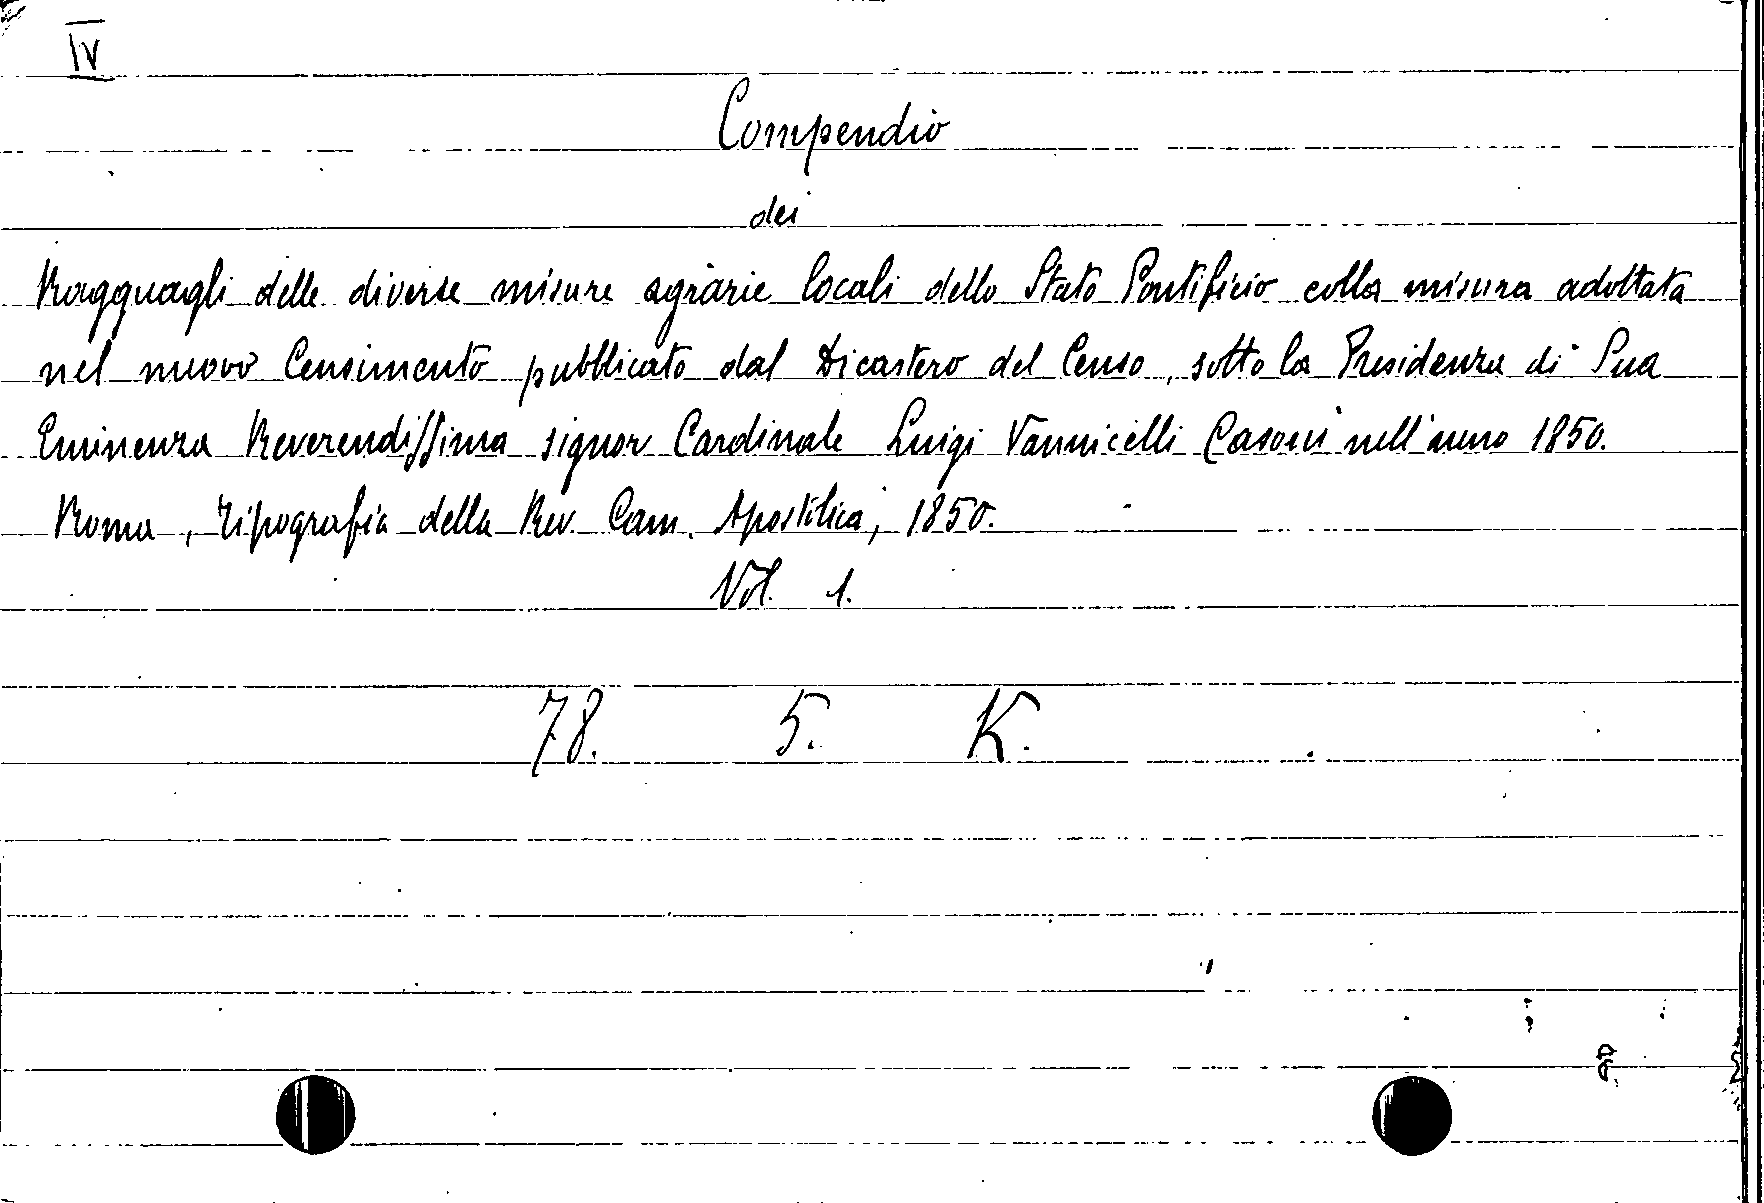 IV
Compendio
dei
Ragguagli delle diverse misure agrarie locali dello Stato Pontificio colla misura adottata
nel nuovo Censimento pubblicato dal Dicastero del Censo, sotto la Presidenza di Sua
Eminenza Reverendissima signor Cardinale Luigi Vannicelli Casoni nell'anno 1850.
Roma, Tipografia della Rev. Cam. Apostolica, 1850.
Vol. 1.
78. 5. K.